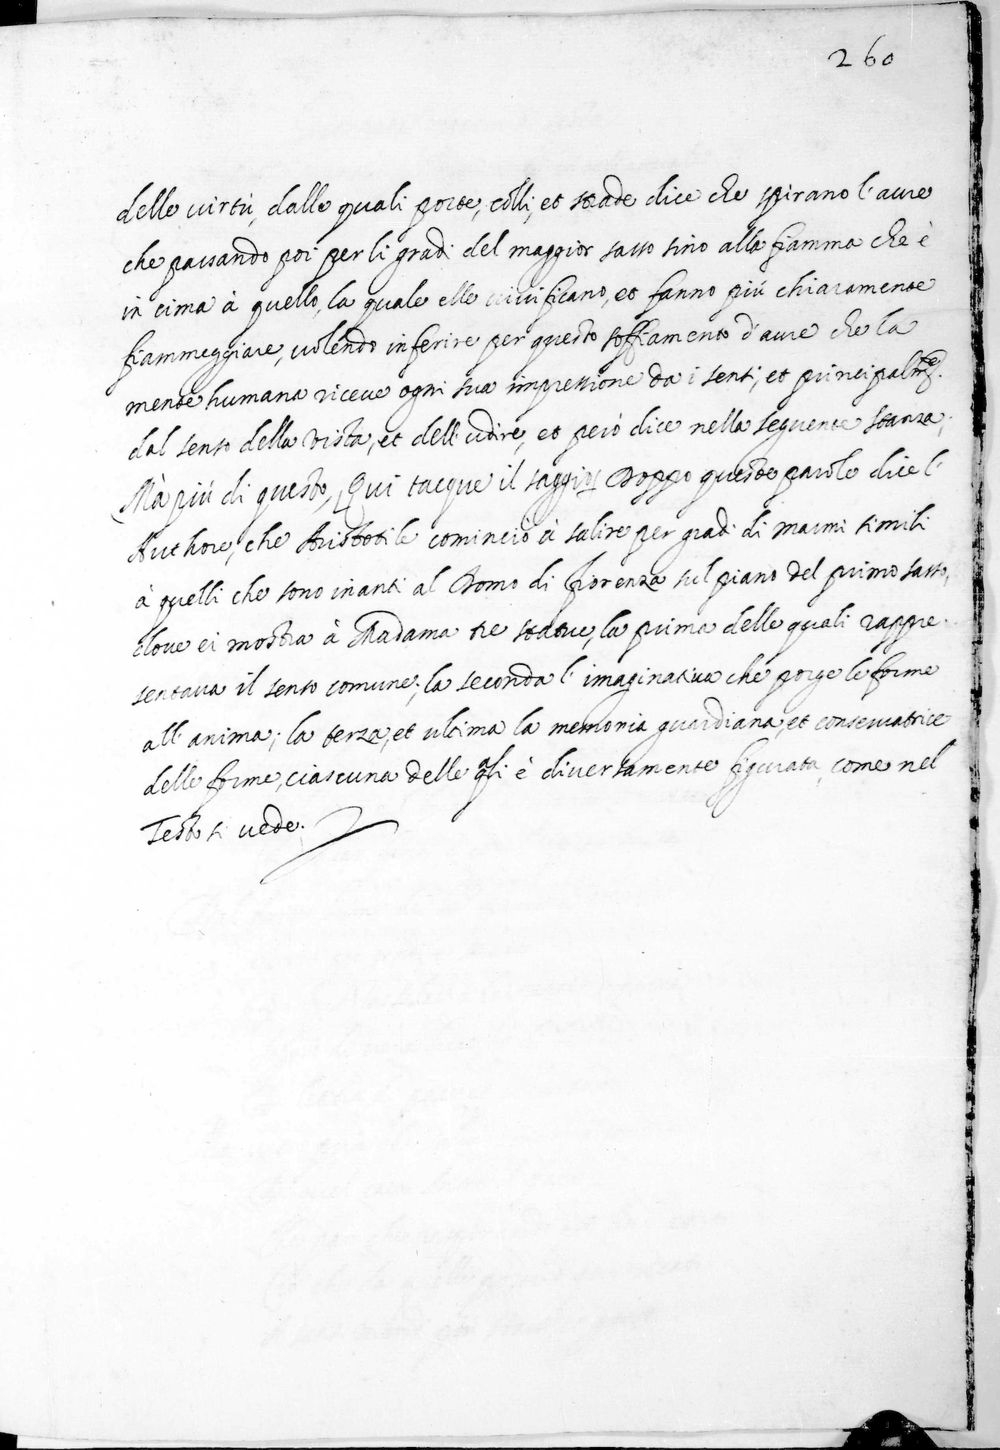 260
delle virtù, dalle quali porte, colli, et strade dice che spirano l'aure
che passando poi per li gradi del maggior sasso sino alla fiamma che è
in cima à quello, la quale elle vivificano, et fanno più chiaramente
fiammeggiare, volendo inferire per questo soffiamento d'aure che la
mente humana riceve ogni sua impressione da i sensi, et principalm.te
dal senso della vista, et dell'udire, et però dice nella seguente stanza;
Mà più di questo, Qui tacque il saggio Doppo queste parole dice l'
Authore, che Aristotile cominciò à salire per gradi di marmi simili
à quelli che sono inanti al Domo di Fiorenza sul piano del primo sasso,
dove ei mostra à Madama tre statue, la prima delle quali rappre-
sentava il senso comune; la seconda l'imaginativa che porge le forme
all'anima; la terza, et ultima la memoria guardiana, et conservatrice
delle forme, ciascuna delle qli è diversamente figurata, come nel
Testo si vede.